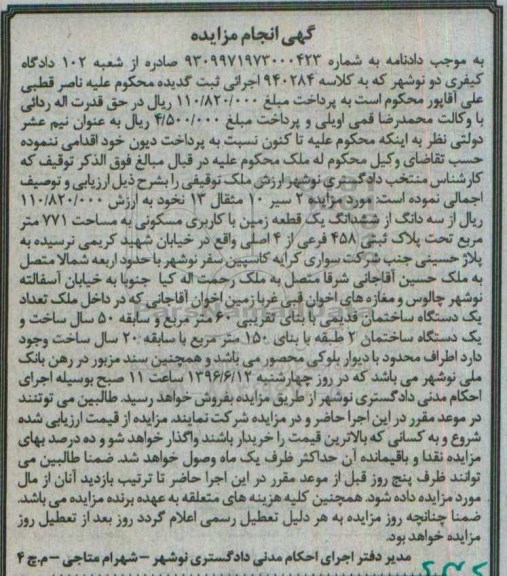 گهی انجام مزایده
به موجب دادنامه به شماره ۹۳۰۹۹۷۱۹۷۳۰۰۰۴۲۳ صادره از شعبه ۱۰۲ دادگاه
کیفری دو نوشهر که به کلاسه ۹۴۰۲۸۴ اجرائی ثبت گدیده محکوم علیه ناصر قطبی
علی آقاپور محکوم است به پرداخت مبلغ ۱۱۰/۸۲۰/۰۰۰ ریال در حق قدرت اله ردائی
با وکالت محمدرضا قمی اویلی و پرداخت مبلغ ۴/۵۰۰/۰۰۰ ریال به عنوان نیم عشر
دولتی نظر به اینکه محکوم علیه تا کنون نسبت به پرداخت دیون خود اقدامی ننموده
حسب تقاضای وکیل محکوم له ملک محکوم علیه در قبال مبالغ فوق الذکر توقیف که
کارشناس منتخب دادگستری نوشهر ارزش ملک توقیفی را بشرح ذیل ارزیابی و توصیف
اجمالی نموده است: مورد مزایده ۲ سیر ۱۰ مثقال ۱۳ نخود به ارزش ۱۱۰/۸۲۰/۰۰۰
ریال از سه دانگ از ششدانگ یک قطعه زمین با کاربری مسکونی به مساحت ۷۷۱ متر
مربع تحت پلاک ثبتی ۴۵۸ فرعی از ۴ اصلی واقع در خیابان شهید کریمی نرسیده به
پلاژ حسینی جنب شرکت سواری کرایه کاسپین سفر نوشهر با حدود اربعه شمالا متصل
به ملک حسین آقاجانی شرقا متصل به ملک رحمت اله کیا جنوبا به خیابان آسفالته
نوشهر چالوس و مغازه های اخوان قبی غربا زمین اخوان آقاجانی که در داخل ملک تعداد
یک دستگاه ساختمان قدیمی با بنای تقریبی ۶۰ متر مربع و سابقه ۵۰ سال ساخت و
یک دستگاه ساختمان ۲ طبقه با بنای ۱۵۰ متر مربع با سابقه ۲۰ سال ساخت وجود
دارد اطراف محدود با دیوار بلوکی محصور می باشد و همچنین سند مزبور در رهن بانک
ملی نوشهر می باشد که در روز چهارشنبه ۱۳۹۶/۶/۱۲ ساعت ۱۱ صبح بوسیله اجرای
احکام مدنی دادگستری نوشهر از طریق مزایده بفروش خواهد رسید. طالبین می توتنند
در موعد مقرر در این اجرا حاضر و در مزایده شرکت نمایند. مزایده از قیمت ارزیابی شده
شروع و به کسانی که بالاترین قیمت را خریدار باشند واگذار خواهد شو و ده درصد بهای
مزایده نقدا و باقیمانده آن حداکثر ظرف یک ماه وصول خواهد شد. ضمنا طالبین می
توانند ظرف پنج روز قبل از موعد مقرر در این اجرا حاضر تا ترتیب بازدید آنان از مال
مورد مزایده داده شود. همچنین کلیه هزینه های متعلقه به عهده برنده مزایده می باشد.
ضمنا چنانچه روز مزایده به هر دلیل تعطیل رسمی اعلام گردد روز بعد از تعطیل روز
مزایده خواهد بود.
مدیر دفتر اجرای احکام مدنی دادگستری نوشهر – شهرام متاجی – م.ج ۴